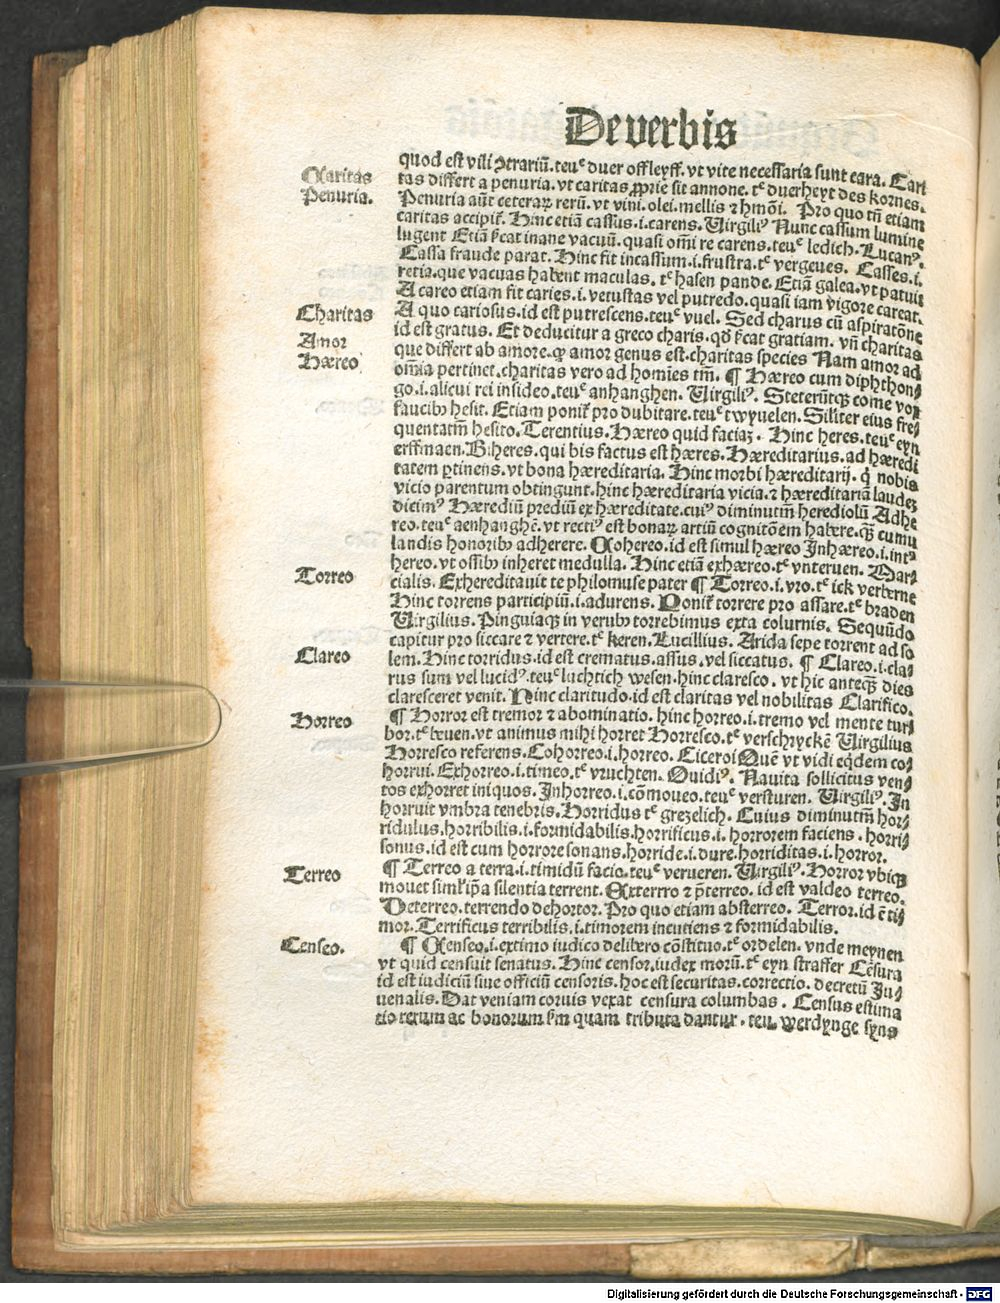 De verbis
quod est vili ↄtrariū. teuᵉ duer off leyff. vt vite necessaria sunt cara. Cari
Claritas
tas differt a penuria. vt caritas ꝓprie sit annone. tᵉ duerheyt des kornes.
Penuria.
Penuria aūt ceteraꝝ rerū. vt vini. olei. mellis ⁊ hmōi. Pro quo tñ etiam
caritas accipit̃. Hinc etiā cassus .i. carens. Virgiliꝰ Nunc cassum lumine
lugent Etiā ſ̓cat inane vacuū. quasi omi re carens. teuᵉ ledich. Lucanꝰ.
Cassa fraude parat. Hinc fit incassum .i. frustra. tᵉ vergeues. Casses .i.
retia. que vacuas habent maculas. tᵉ hasen pande. Etiā galea. vt patuit
A careo etiam fit caries .i. vetustas vel putredo. quasi iam vigore careat.
Charitas
A quo cariosus. id est putrescens. teuᵉ vuel. Sed charus cū aspiratōne
id est gratus. Et deducitur a greco charis. qđ ſ̓cat gratiam. vñ charitas
Amor
que differt ab amore. qꝛ amor genus est. charitas species Nam amor ad
Hæreo
omīa pertinet. charitas vero ad homīes tm̄. ¶ Hæreo cum diphthon⸗
go .i. alicui rei insideo. teuᵉ anhanghen. Virgiliꝰ. Steterūtqꝫ come vox
faucibꝰ hesit. Etiam ponit̃ pro dubitare. teuᵉ twyuelen. Siliter eius fre⸗
quentatm̄ hesito. Terentius. Hæreo quid faciaꝫ. Hinc heres. teuᵉ eyn
erffnaen. Biheres. qui bis factus est hæres. Hæreditarius. ad hæredi
tatem ꝑtinens. vt bona hæreditaria. Hinc morbi hæreditarij. q̇ nobis
vicio parentum obtingunt. hinc hæreditaria vicia. ⁊ hæreditariā laudeꝫ
dicimꝰ Hærediū prediū ex hæreditate. cuiꝰ diminutm̄ herediolū Adhe
reo. teuᵉ aenhanghē. vt rectiꝰ est bonaꝝ artiū cognitōem habere. qꝫ̃ cumu
landis honoribꝰ adherere. Cohereo. id est simul hæreo Inhæreo .i. intꝰ
hereo. vt ossibꝰ inheret medulla. Hinc etiā exhæreo. tᵉ vnteruen. Mar⸗
Torreo
cialis. Exhereditauit te philomuse pater ¶ Torreo .i. vro. tᵉ ick verberne
Hinc torrens participiū .i. adurens. Ponit̃ torrere pro assare. tᵉ braden
Virgilius. Pinguiaqꝫ in verubꝰ torrebimus exta colurnis. Sequūdo
capitur pro siccare ⁊ vertere. tᵉ keren. Lucillius. Arida sepe torrent ad so
Clareo
lem. Hinc torridus. id est crematus. assus. vel siccatus. ¶ Clareo .i. cla⸗
rus sum vel lucidꝰ. teuᵉ luchtich wesen. hinc claresco. vt hic anteqꝫ̃ dies
claresceret venit. Hinc claritudo. id est claritas vel nobilitas Clarifico.
Horreo
¶ Horror est tremor ⁊ abominatio. hinc horreo .i. tremo vel mente tur⸗
bor. tᵉ beuen. vt animus mihi horret Horresco. tᵉ verschryckē Virgilius
Horresco referens. Cohorreo .i. horreo. Ciceroi Quē vt vidi eqdem co⸗
horrui. Exhorreo .i. timeo. tᵉ vruchten. Ouidiꝰ. Nauita sollicitus ven⸗
tos exhorret iniquos. Inhorreo .i. cōmoueo. teuᵉ versturen. Virgiliꝰ. In
horruit vmbra tenebris. Horridus tᵉ grezelich. Cuius diminutm̄ hor⸗
ridulus. horribilis .i. formidabilis. horrificus .i. horrorem faciens. horri⸗
sonus. id est cum horrore sonans. horride .i. dure. horriditas .i. horror.
Terreo
¶ Terreo a terra .i. timidū facio. teuᵉ verueren. Virgiliꝰ. Horror vbiqꝫ
mouet simᵏ ip̃a silentia terrent. Exterrro ⁊ ꝑterreo. id est valdeo terreo.
Deterreo. terrendo dehortor. Pro quo etiam absterreo. Terror. id ē ti⸗
mor. Terrificus terribilis .i. timorem incutiens ⁊ formidabilis.
Censeo.
¶ Censeo .i. extimo iudico delibero cōstituo. tᵉ ordelen. vnde meynen
vt quid censuit senatus. Hinc censor. iudex morū. tᵉ eyn straffer Cēsura
id est iudiciū siue officiū censoris. hoc est securitas. correctio. decretū Ju⸗
uenalis. Dat veniam coruis vexat censura columbas. Census estima
tio rerum ac bonorum sm̄ quam tributa dantur. teu. werdynge syns
Digitalisierung gefördert durch die Deutsche Forschungsgemeinschaft - DFG